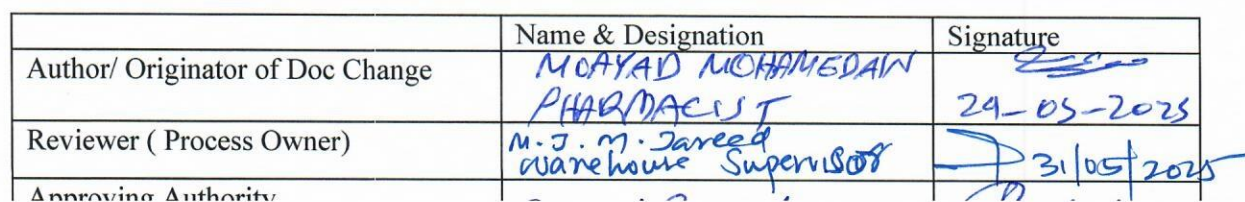 Name & Designation Signature
Author/ Originator of Doc Change MOAYAD MOHAMEDAIN
PHARMACIST 29-05-2025
Reviewer ( Process Owner) M.J.M. Jareed
Warehouse Supervisor 31/05/2025
Approving Authority